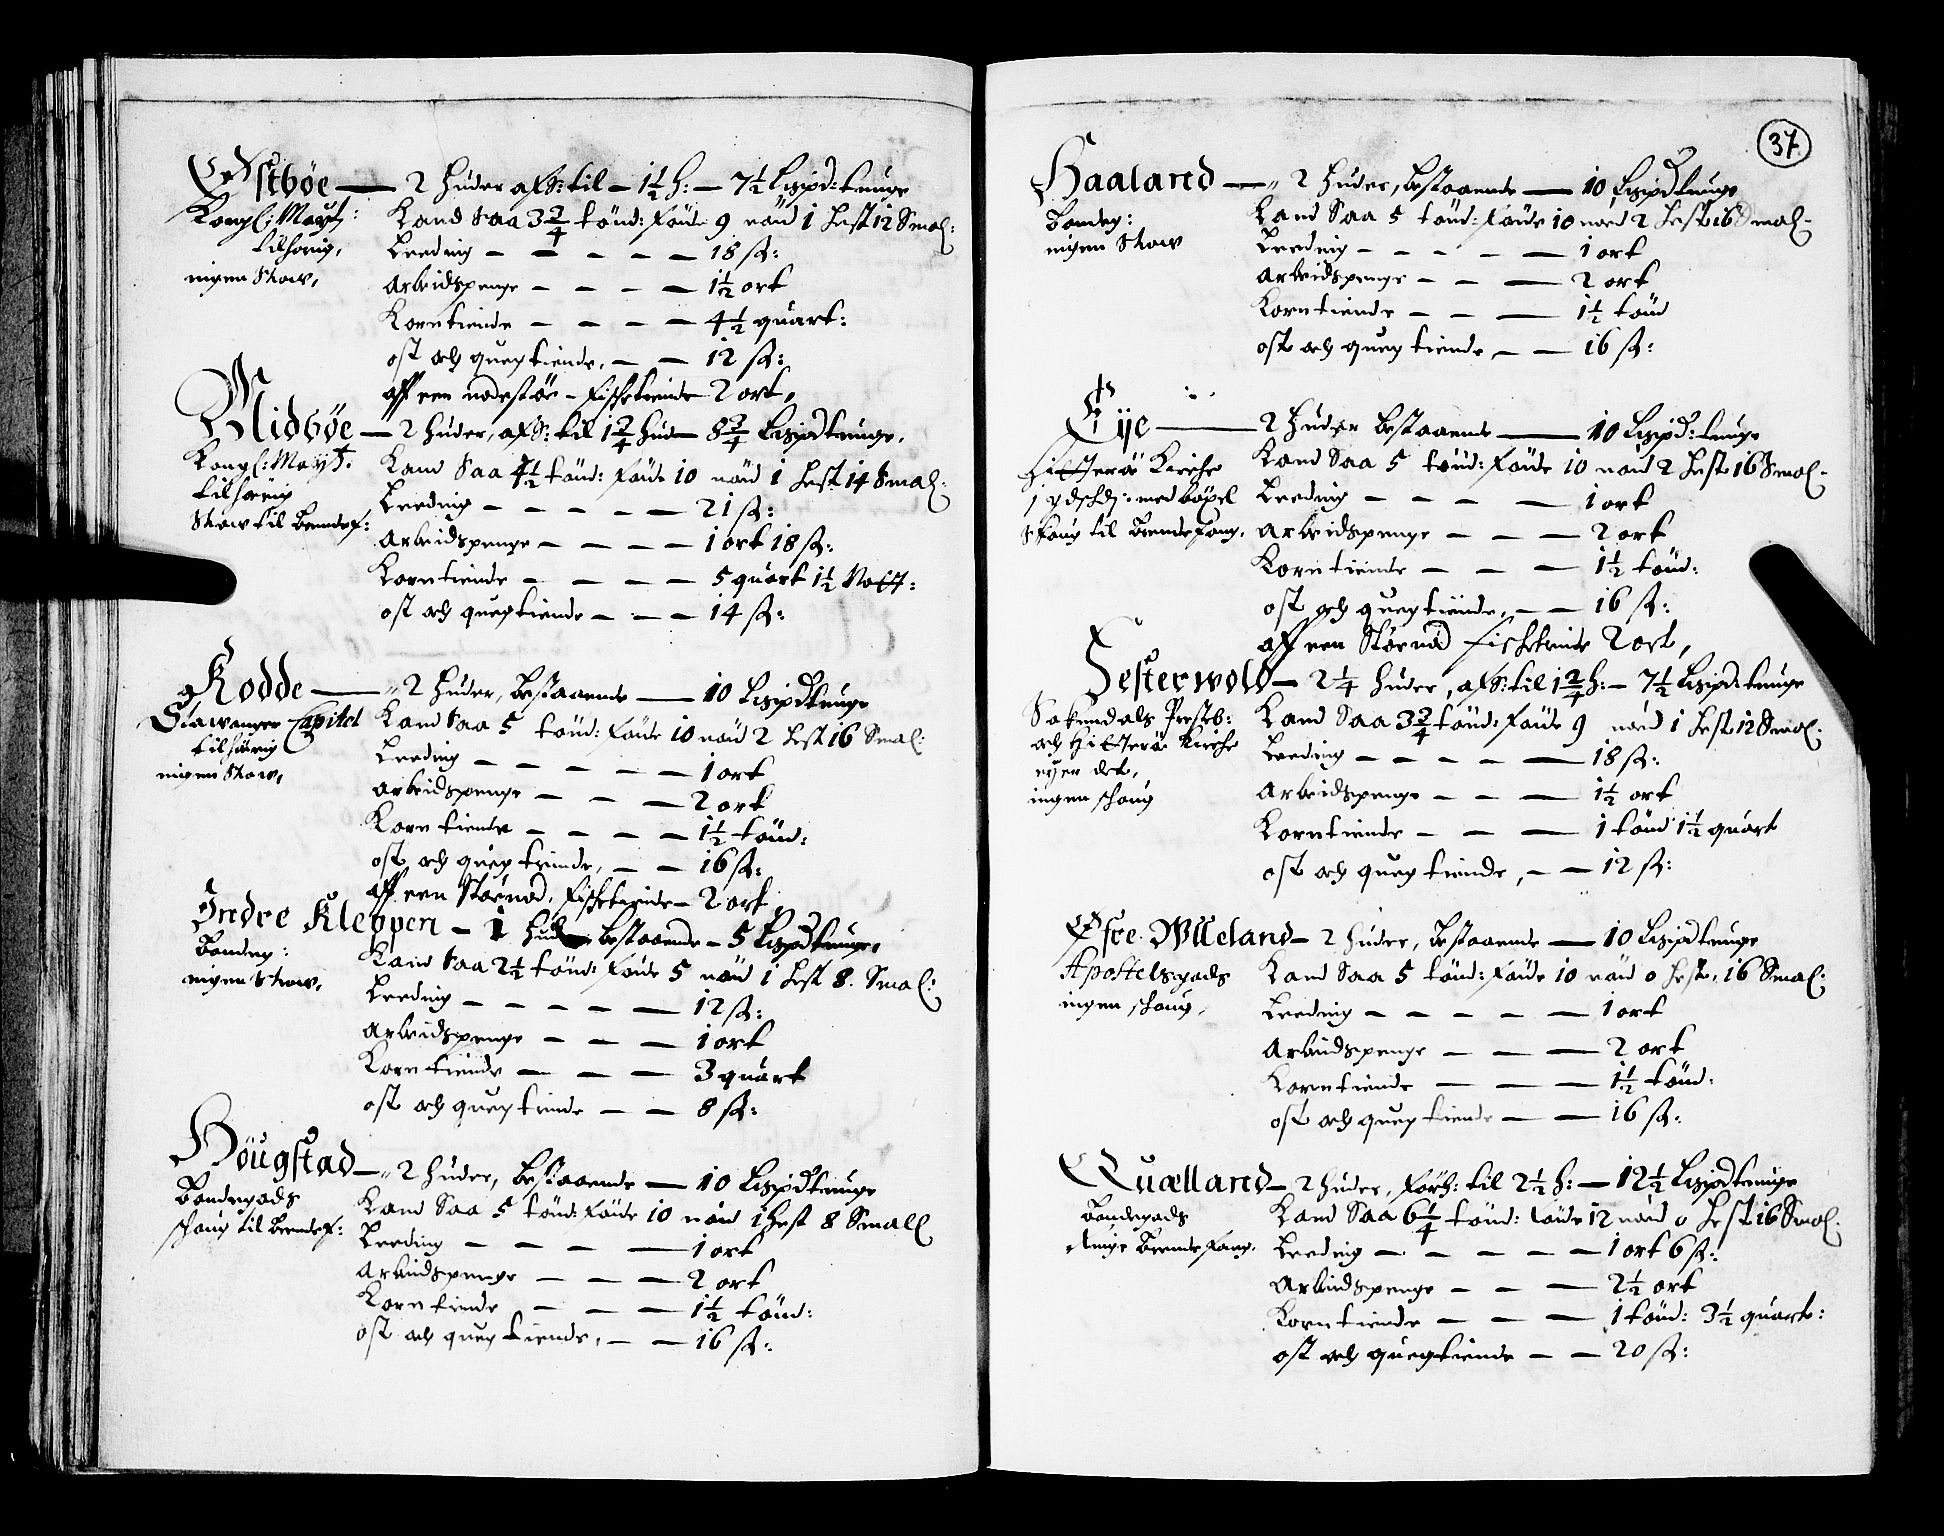 Østbøe — 2 huder afs: til — 1½ h: — 7½ Lispd: tunge
Kongl: Mayst:
tilhörig,
ingen Skow,
Kand Saa 3 2/4 tönd: föude 9 nöud 1 Hest 12 Smal:
Leeding — — — — — 18 sk:
Arbeidspenge — — — — 1½ ort
Korntiende — — — — 4½ quart:
ost och quegtiende, — — 12 sk:
aff een nodestöe – Fischetiende 2 ort,
Midbøe — 2 huder, afs: til 1 2/4 hud — 8 3/4 Lispdtunge,
Kongl: Mayst.
tilhörig
Skow til Brendef:
Kand Saa 4½ tönd: föude 10 nöud 1 Hest 14 Smal:
Leeding — — — — — 21 sk:
Arbeidspenge — — — — 1 ort 18 sk:
Korntiende — — — — 5 quart 1½
ost och quegtiende — — — 14 sk:
Rodde — „ 2 huder, bestaaende — 10 Lispdtunge
Stawanger Capitel
tilhörig
ingen Skow,
Kand Saa 5 tönd: föude 10 nöud 2 Hest 16 Smal:
Leeding — — — — — 1 ort
Arbeidspenge — — — — 2 ort
Korntiende — — — — 1½ tönd:
ost och quegtiende, — — 16 sk:
aff een Störnod, Fischetiende — 2 ort
Indre Kleppen — 1 hud bestaaende — 5 Lispdtunge,
Bondeg:
ingen Skow,
Kand Saa 2½ tönd: föude 5 nöud 1 Hest 8. Smal:
Leeding — — — — — 12 sk:
Arbeidspenge — — — — 1 ort
Korntiende — — — — 3 quart
ost och quegtiende — — 8 sk:
Höugstad — „ 2 huder, bestaaende — 10 Lispdtunge
Bondegods
skoug til brendef:
Kand Saa 5 tönd: föude 10 nöud 1 Hest 8 Small
Leeding — — — — 1 ort
Arbeidspenge — — — 2 ort
Korntiende — — — 1½ tönd:
ost och quegtiende, — — 16 sk:
37
Haaland — „ 2 huder, bestaaende — 10 Lispdtunge
Bondeg:
ingen Skow
Kand Saa 5 tönd: föude 10 nöud 2 Hest 16 Smal:
Leeding — — — — — 1 ort
Arbeidspenge — — — 2 ort
Korntiende — — — 1½ tönd
ost och quegtiende, — — 16 sk:
Eije — 2 huder bestaaende — 10 Lispd: tunge
Hitterö Kirche
med böxel
Skoug til brendefang,
Kand Saa 5 tönd: föude 10 nöud 2 Hest 16 Smal:
Leeding — — — — 1 ort
Arbeidspenge — — — 2 ort
Korntiende — — — 1½ tönd:
ost och quegtiende, — — 16 sk:
aff een Störnod Fischetiende 2 ort,
Sesterwold — 2¼ huder, afs: til 1 2/4 h: — 7½ Lispd: tunge
Sokendals Prestb:
och Hitterö Kirche
eijer det,
ingen schoug
Kand Saa 3 2/4 tönd: föude 9 nöud 1 Hest 12 Smal:
Leeding — — — — — 18 sk:
Arbeidspenge — — — 1½ ort
Korntiende — — — 1 tönd 1½ quart
ost och quegtiende, — — 12 sk:
Øfre Wlleland — 2 huder, bestaaende — 10 Lispdtunge
Apostelgods
ingen schoug,
Kand Saa 5 tönd: föude 10 nöud 0 Hest, 16 Smal:
Leeding — — — — — 1 ort
Arbeidspenge — — — 2 ort
Korntiende — — — 1½ tönd:
ost och quegtiende — — 16 sk:
Quælland — 2 huder, forh: til 2½ h: — 12½ Lispdtunge
Bondegods
ringe brendefang,
Kand Saa 6¼ tönd: föude 12 nöud 0 Hest 16 Smal:
Leeding — — — — — 1 ort 6 sk:
Arbeidspenge — — — 2½ ort
Korntiende — — — 1 tönd: 3½ quart:
ost och quegtiende — — 20 sk: